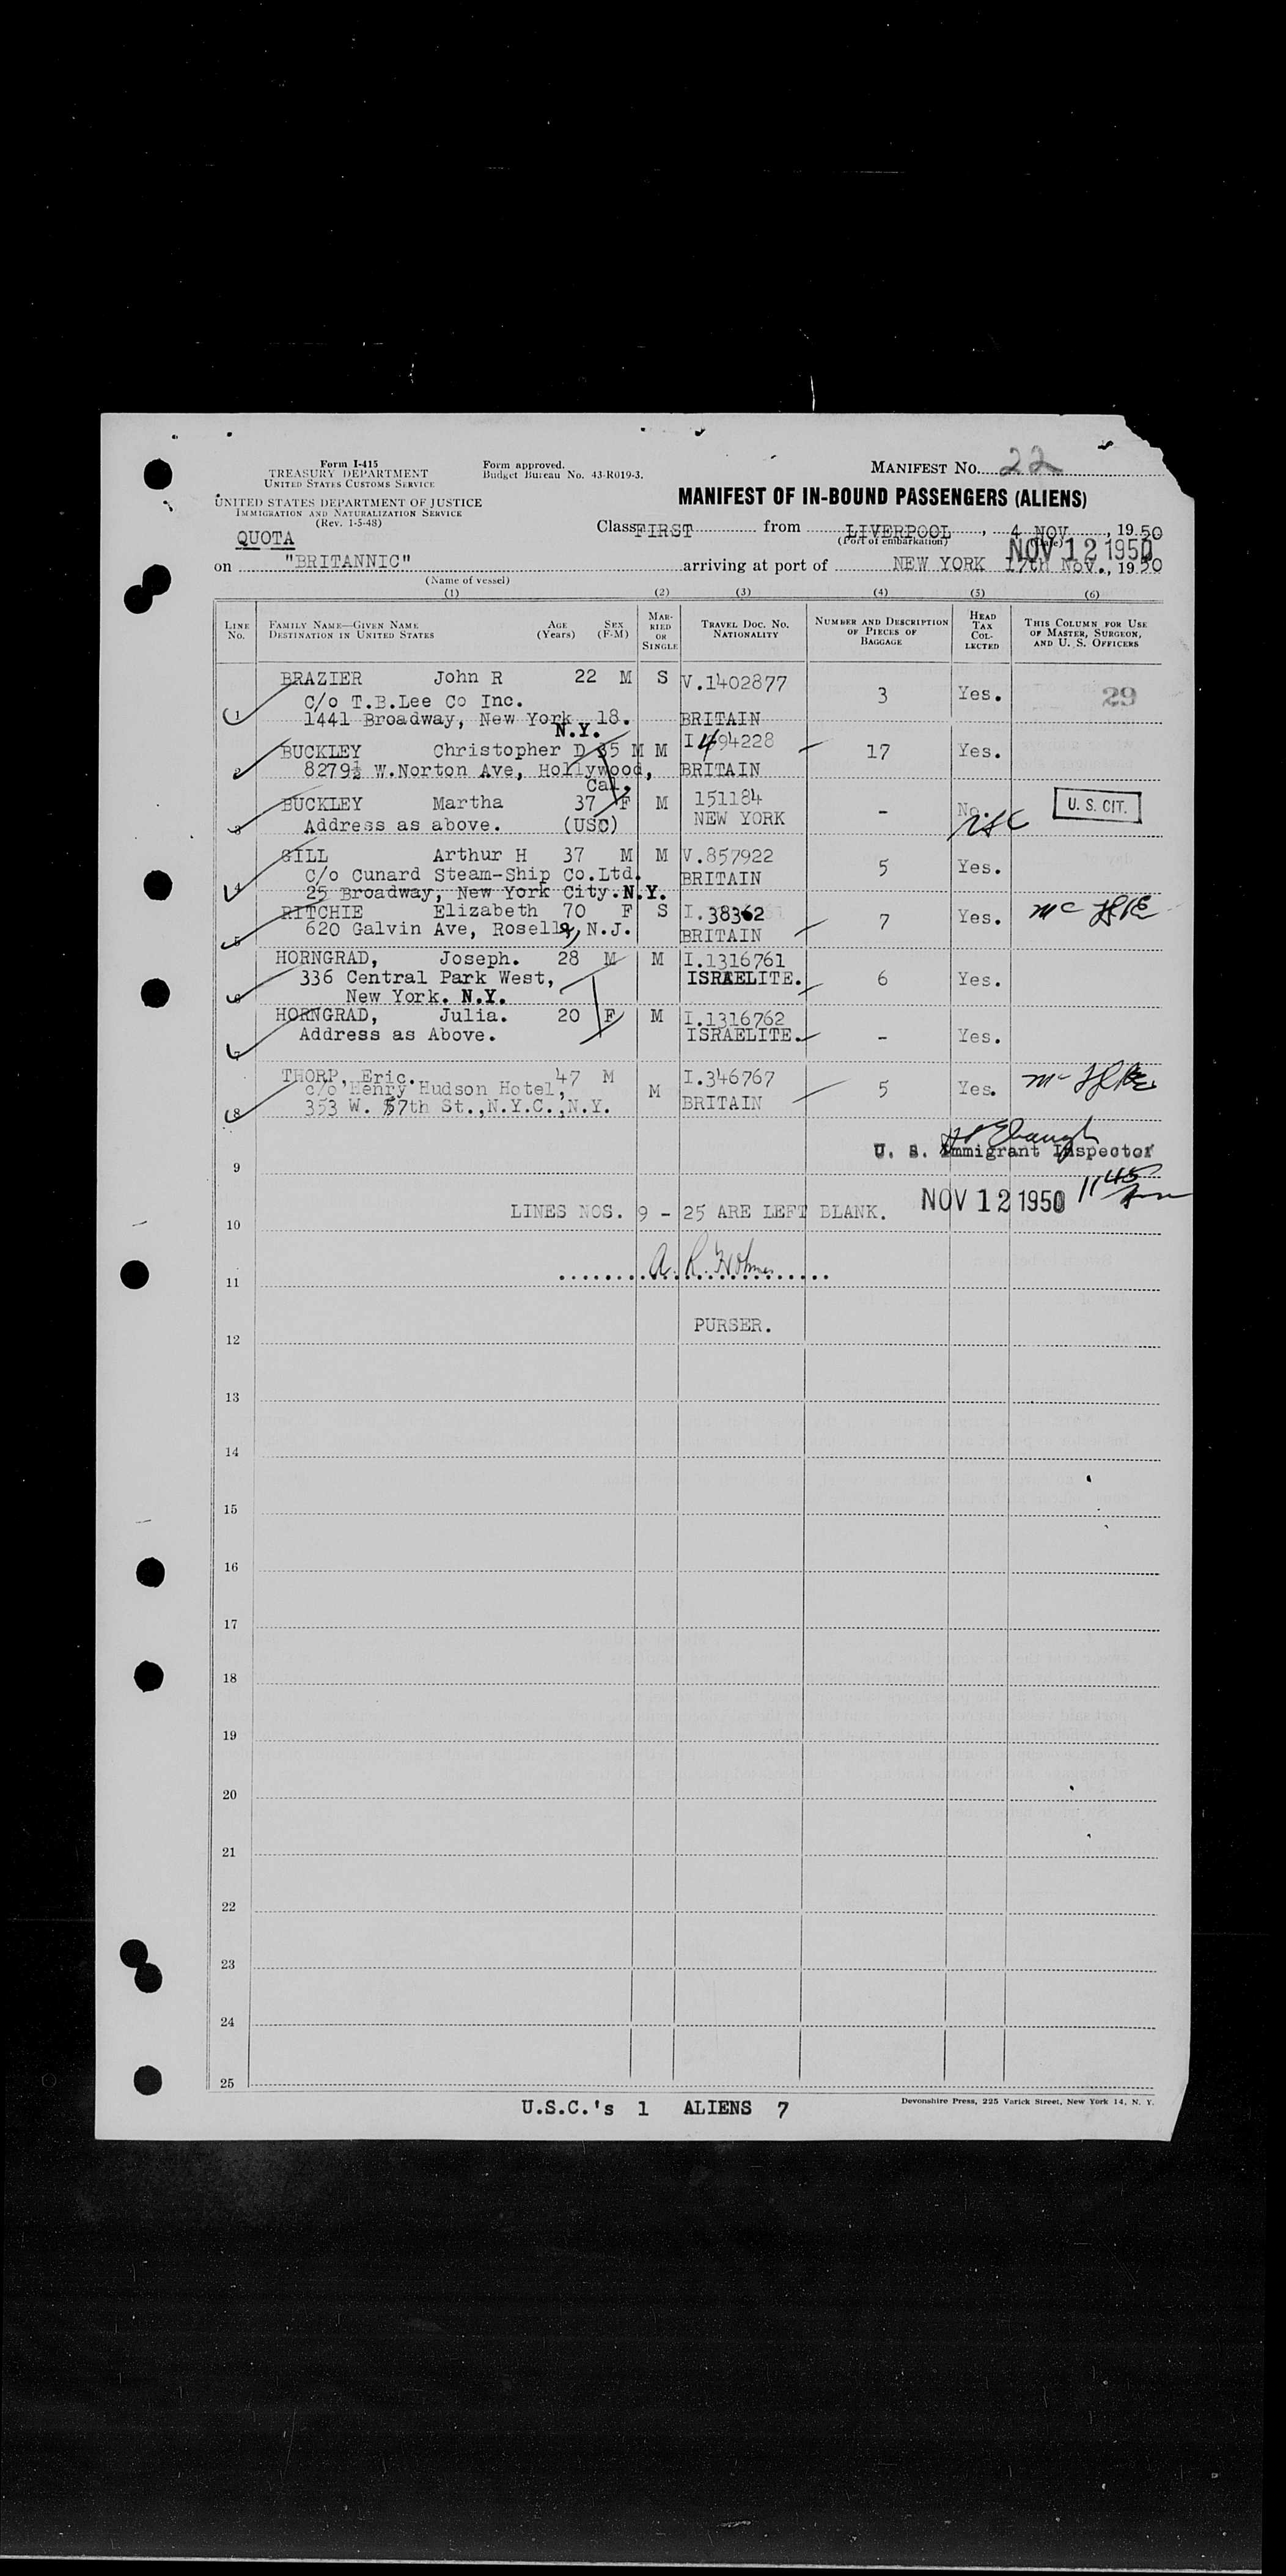 Form I-415
TREASURY DEPARTMENT
UNITED STATES CUSTOMS SERVICE
Form approved.
Budget Bureau No. 43-R019-3.
MANIFEST No. 22
UNITED STATES DEPARTMENT OF JUSTICE
IMMIGRATION AND NATURALIZATION SERVICE
(Rev. 1-5-48)
MANIFEST OF IN-BOUND PASSENGERS (ALIENS)
QUOTA
Class FIRST from LIVERPOOL, 4 NOV, 1950
(Port of embarkation) (Date)
NOV 12 1950
on "BRITANNIC" arriving at port of NEW YORK 12th Nov., 1950
(Name of vessel)
(1) (2) (3) (4) (5) (6)
LINE No. FAMILY NAME—GIVEN NAME DESTINATION IN UNITED STATES AGE (Years) SEX (F-M) MARRIED OR SINGLE TRAVEL DOC. NO. NATIONALITY NUMBER AND DESCRIPTION OF PIECES OF BAGGAGE HEAD TAX COLLECTED THIS COLUMN FOR USE OF MASTER, SURGEON, AND U. S. OFFICERS
1 BRAZIER John R 22 M S V.1402877 3 Yes. 29
C/o T.B.Lee Co Inc.
1441 Broadway, New York 18. BRITAIN
N.Y.
2 BUCKLEY Christopher D 35 M M I494228 17 Yes.
8279½ W.Norton Ave, Hollywood, BRITAIN
Cal.
3 BUCKLEY Martha 37 F M 151184 - No. USC U. S. CIT.
Address as above. (USC) NEW YORK
4 GILL Arthur H 37 M M V.857922 5 Yes.
C/o Cunard Steam-Ship Co.Ltd. BRITAIN
25 Broadway, New York City.N.Y.
5 RITCHIE Elizabeth 70 F S I.38362 7 Yes.
620 Galvin Ave, Roselle, N.J. BRITAIN
6 HORNGRAD, Joseph. 28 M M I.1316761 6 Yes.
336 Central Park West, ISRAELITE.
New York. N.Y.
7 HORNGRAD, Julia. 20 F M I.1316762 - Yes.
Address as Above. ISRAELITE.
8 THORP, Eric. 47 M M I.346767 5 Yes.
c/o Henry Hudson Hotel,
353 W. 57th St.,N.Y.C.,N.Y. BRITAIN
U. S. Immigrant Inspector
9
NOV 12 1950 1145
LINES NOS. 9 - 25 ARE LEFT BLANK.
10
A. R. Holmes
11
PURSER.
12
13
14
15
16
17
18
19
20
21
22
23
24
25
U.S.C.'s 1 ALIENS 7
Devonshire Press, 225 Varick Street, New York 14, N. Y.